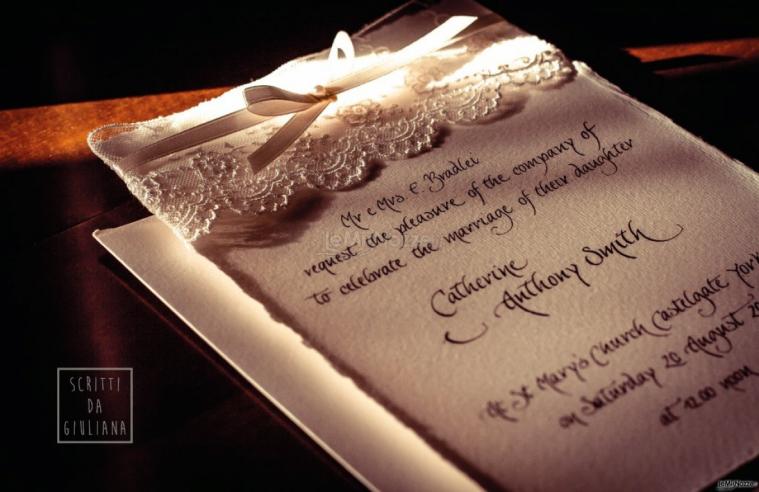 Mr e Mrs. E. Bradlei
request the pleasure of the company of
to celebrate the marriage of their daughter
Catherine
Anthony Smith
At St Mary's Church Castelgate York
on Saturday 20 August 20
at 12.00 noon
SCRITTI
DA
GIULIANA
LeMieNozze
LeMieNozze